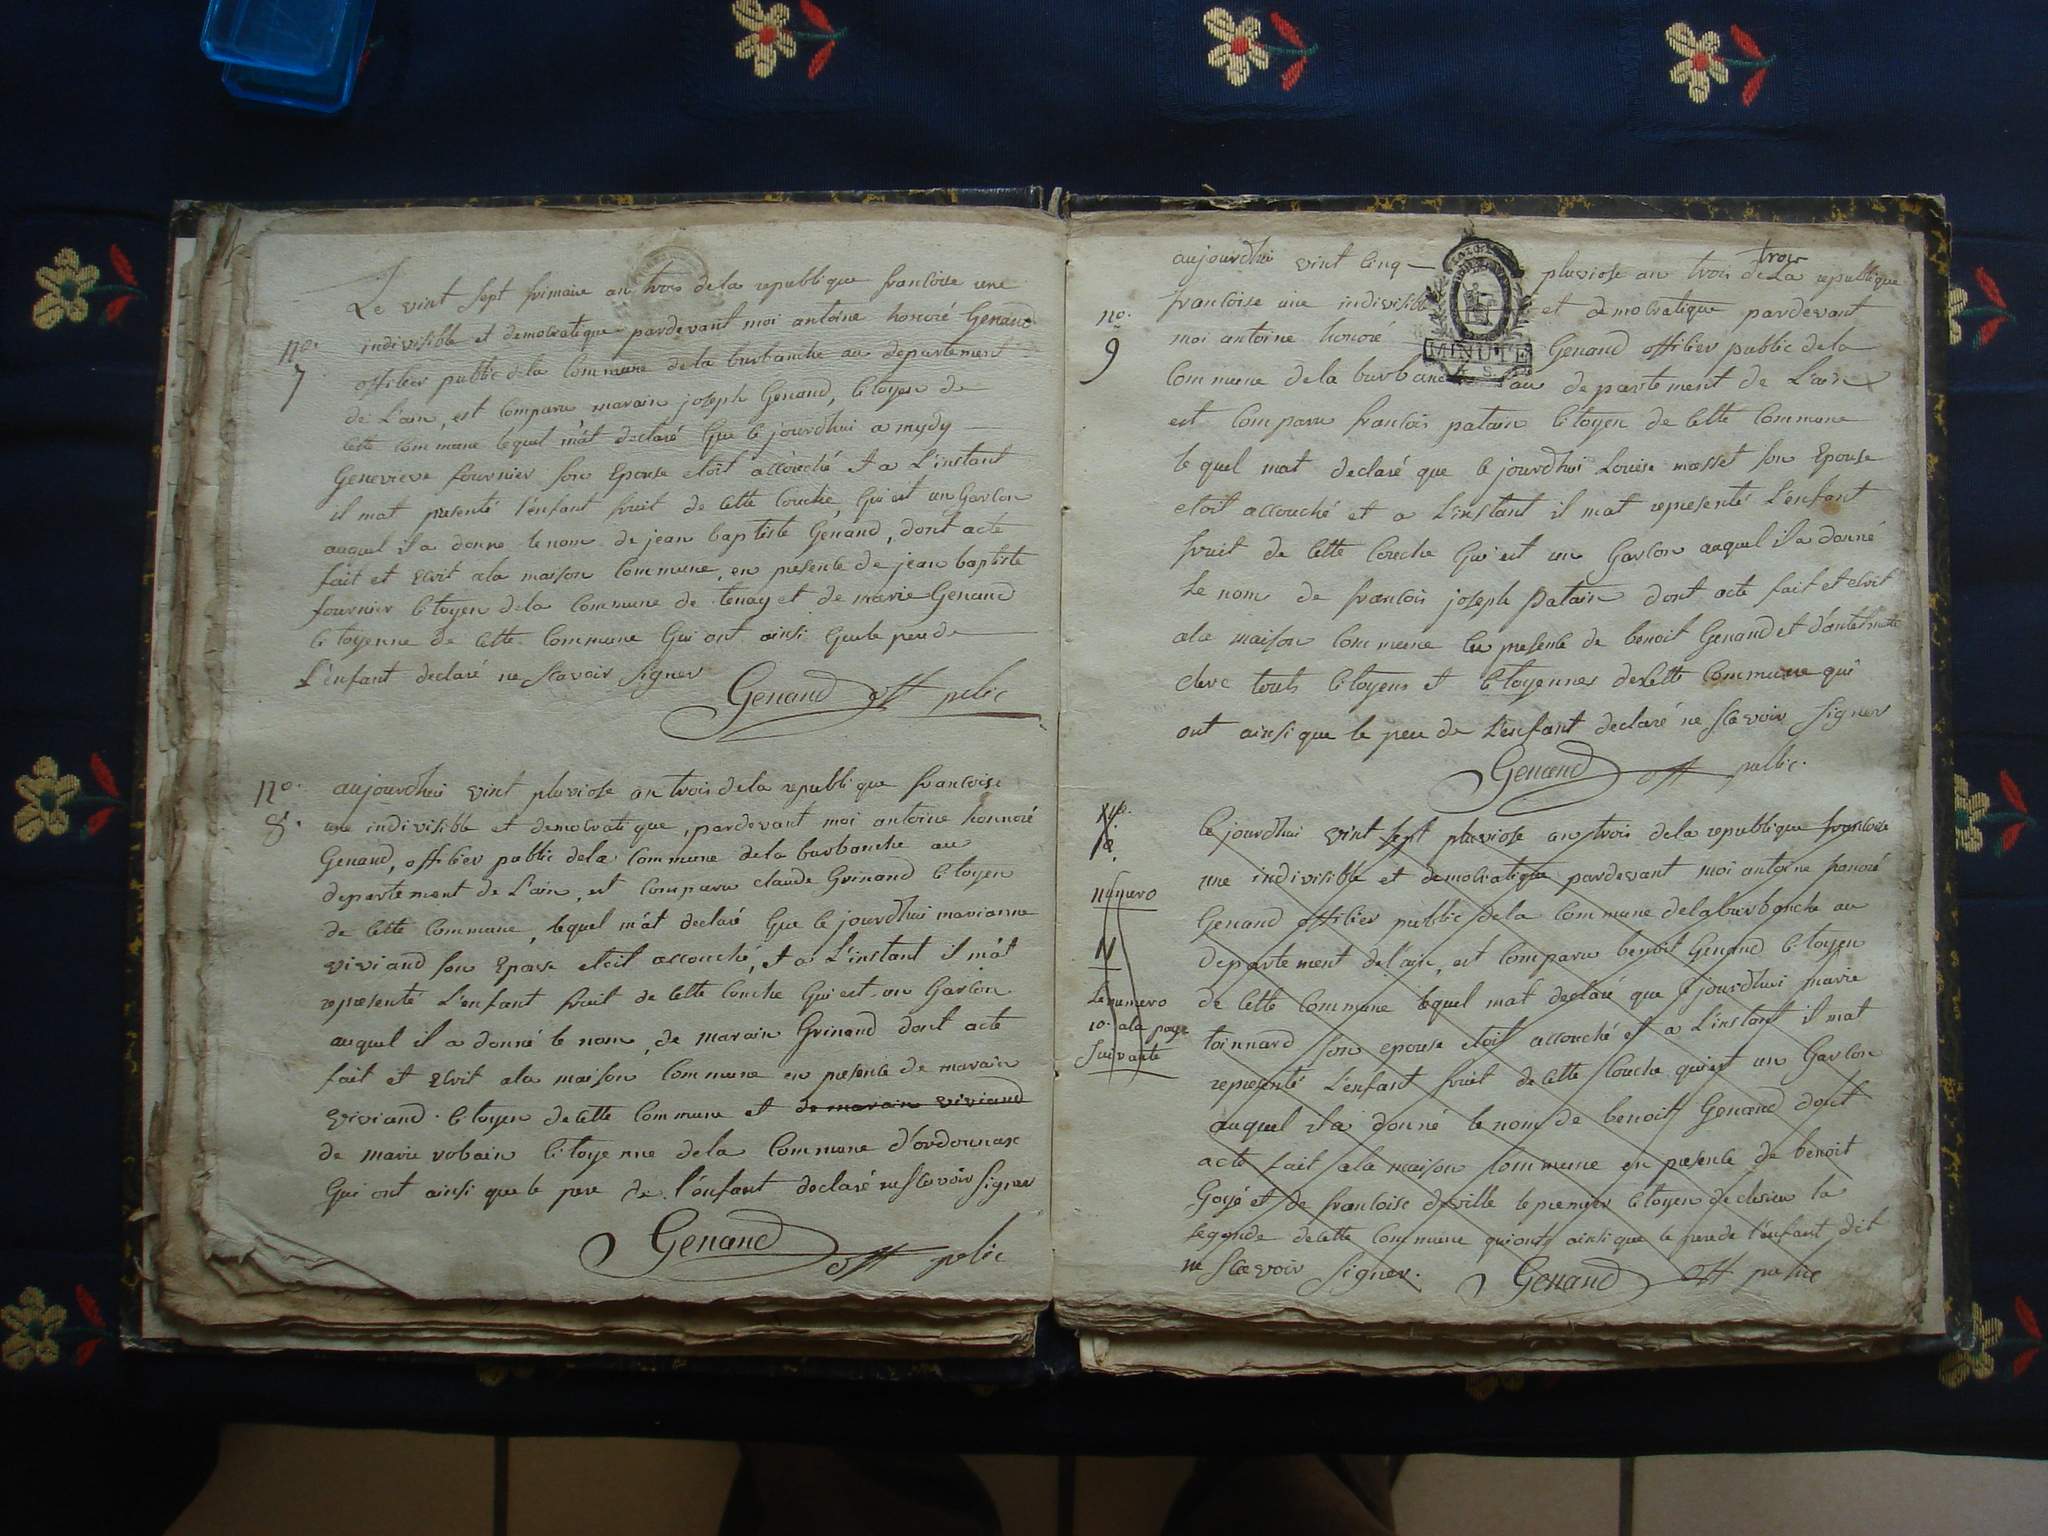 Le vint sept frimaire an trois de la republique francoise une
indivisible et democratique pardevant moi antoine honoré Genand
no. 7
officier public de la commune de la burbanche au departement
de L'ain, est comparu marain joseph Genand, citoyen de
cette commune lequel m'at declaré que ce jourdhui a mydy
Genevieve fournier son Epouse etoit accouché et a L'instant
il mat presenté l'enfant fruit de cette couche, qui est un Garcon
auquel il a donne le nom de jean baptiste Genand, dont acte
fait et Ecrit ala maison commune, en presence de jean baptiste
fournier citoyen de la commune de tenay et de marie Genand
citoyenne de cette commune qui ont ainsi que le peu de
L'enfant declaré ne scavoir signer
Genand off pelic
no. 8.
aujourdhui vint pluviose an trois de la republique francoise
une indivisible et democratique, pardevant moi antoine honnoré
Genand, officier public de la commune de la burbanche au
departement de L'ain, est comparu claude Grinand citoyen
de cette commune, lequel m'at declaré que ce jourdhui marianne
viviand son Epouse etoit accouché, et a L'instant il m'at
representé L'enfant fruit de cette couche qui est un Garcon
auquel il a donné le nom, de marain Grinand dont acte
fait et Ecrit ala maison commune en presence de marain
viviand citoyen de cette commune et de marain viviand
de marie robain citoyenne de la commune d'ordonnax
qui ont ainsi que le pere de l'enfant declaré ne scavoir signer
Genand off pelic
aujourdhui vint cinq pluviose an trois de la republique
trois
no. 9
francoise une indivisible et democratique pardevant
moi antoine honoré Genand officier public de la
MINUTE
commune de la burbanche au departement de L'ain
est comparu francois patain citoyen de cette commune
lequel mat declaré que ce jourdhui Louise masset son Epouse
etoit accouché et a L'instant il mat representé L'enfant
fruit de cette couche qui est un Garcon auquel il a donné
Le nom de francois joseph patain dont acte fait et ecrit
ala maison commune en presence de benoit Genand et
clerc touts citoyens et citoyennes de cette commune qui
ont ainsi que le peu de L'enfant declaré ne scavoir signer
Genand off pellic.
ce jourdhui vint sept pluviose an trois de la republique francoise
une indivisible et democratique pardevant moi antoine honoré
numero
Genand officier public de la commune de la burbanche au
11
departement de l'ain, est comparu benoit Genand citoyen
Le numero
de cette commune lequel mat declaré que ce jourdhui marie
10. ala page
toinnard son epouse etoit accouché et a L'instant il mat
suivante
representé L'enfant fruit de cette couche qui est un Garcon
auquel il a donné le nom de benoit Genand dont
acte fait ala maison commune en presence de benoit
Goyé et de francoise deville le premier citoyen de
la
segonde de cette commune qui ont ainsi que le pere de l'enfant dit
ne scavoir signer. Genand off pelic